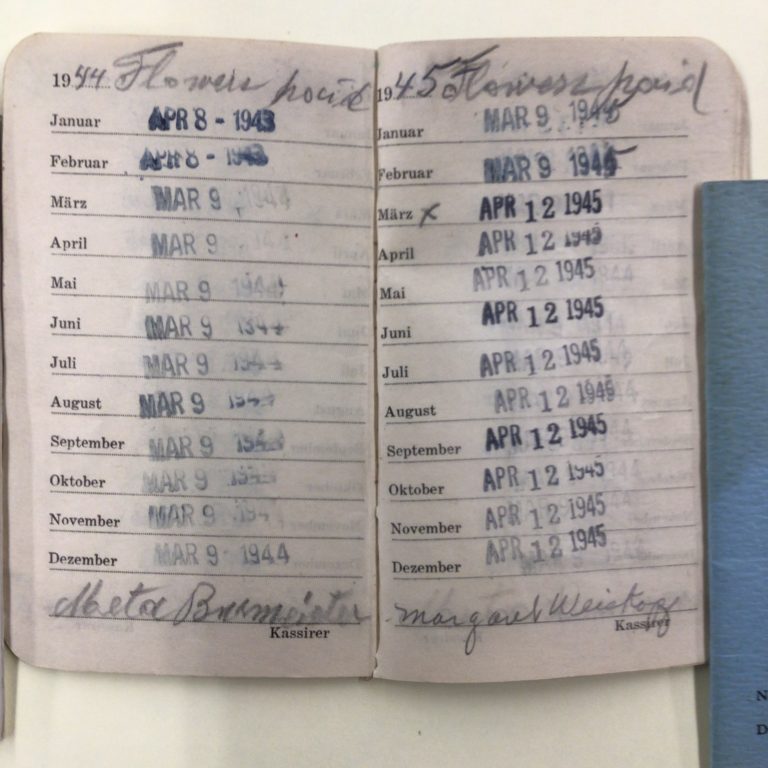 1944 Flowers paid
Januar APR 8 - 1943
Februar APR 8 - 1943
März MAR 9 1944
April MAR 9
Mai MAR 9 1944
Juni MAR 9 1944
Juli MAR 9 1944
August MAR 9 1944
September MAR 9 1944
Oktober MAR 9 1944
November MAR 9 1944
Dezember MAR 9 - 1944
Meta Burmeister
Kassirer
1945 Flowers paid
Januar MAR 9 1945
Februar MAR 9 1945
März x APR 12 1945
April APR 12 1945
Mai APR 12 1945
Juni APR 12 1945
Juli APR 12 1945
August APR 12 1945
September APR 12 1945
Oktober APR 12 1945
November APR 12 1945
Dezember APR 12 1945
Margaret Weiskopf
Kassirer
N
D